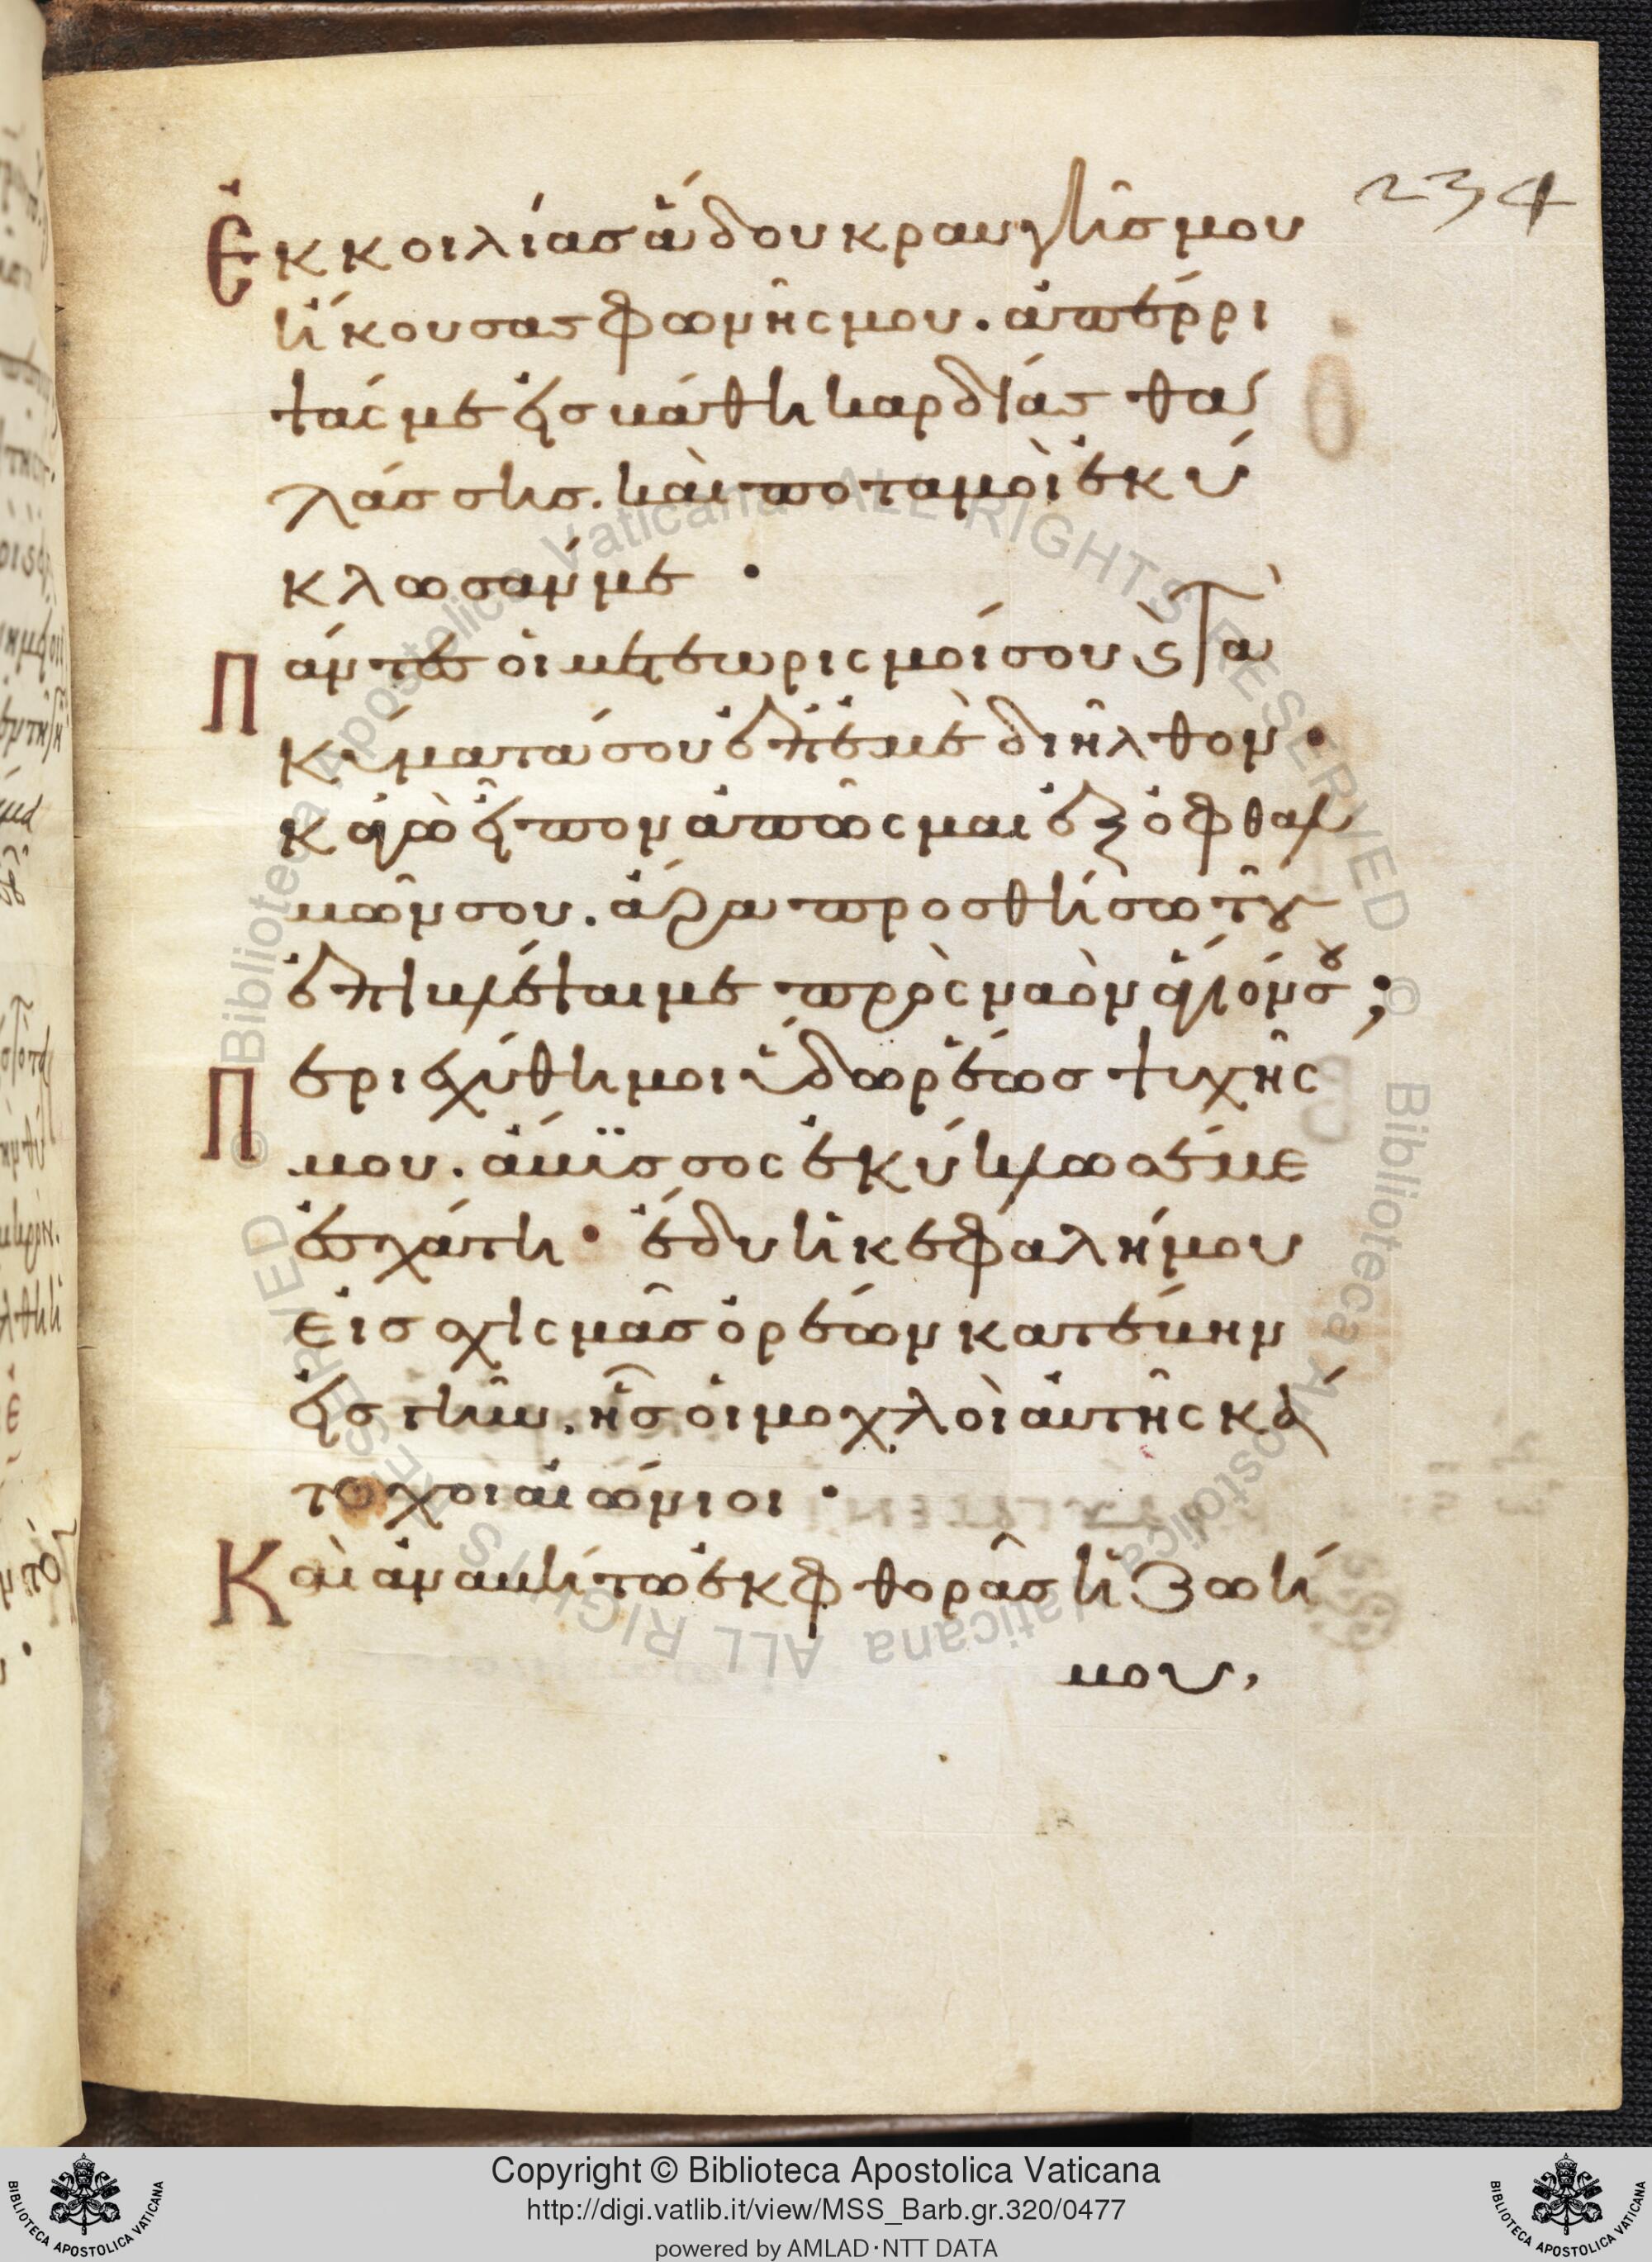 234
Ἐκ κοιλίας ἅδου κραυγῆς μου
ἤκουσας φωνῆς μου. ἀπέρρι
ψάς με εἰς βάθη καρδίας θα
λάσσης. καὶ ποταμοὶ ἐκύ
κλωσάν με ·
Πάντες οἱ μετεωρισμοί σου ϛ τὰ
κύματά σου ἐπ' ἐμὲ διῆλθον ·
κἀγὼ εἶπον ἀπῶσμαι ἐξ ὀφθαλ
μῶν σου. ἄρα προσθήσω τοῦ
ἐπιβλέψαι με πρὸς ναὸν ἅγιόν σου ;
Περιεχύθη μοι ὕδωρ ἕως ψυχῆς
μου. ἄβϋσσος ἐκύκλωσέ με
ἐσχάτη · ἔδυ ἡ κεφαλή μου
εἰς σχισμὰς ὀρέων κατέβην
εἰς γῆν. ἧς οἱ μοχλοὶ αὐτῆς κά
τοχοι αἰώνιοι ·
Καὶ ἀναβήτω ἐκ φθορᾶς ἡ ζωή
μου.
© Biblioteca Apostolica Vaticana ALL RIGHTS RESERVED © Biblioteca Apostolica Vaticana ALL RIGHTS RESERVED
Copyright © Biblioteca Apostolica Vaticana
http://digi.vatlib.it/view/MSS_Barb.gr.320/0477
powered by AMLAD·NTT DATA
BIBLIOTECA APOSTOLICA VATICANA
BIBLIOTECA APOSTOLICA VATICANA